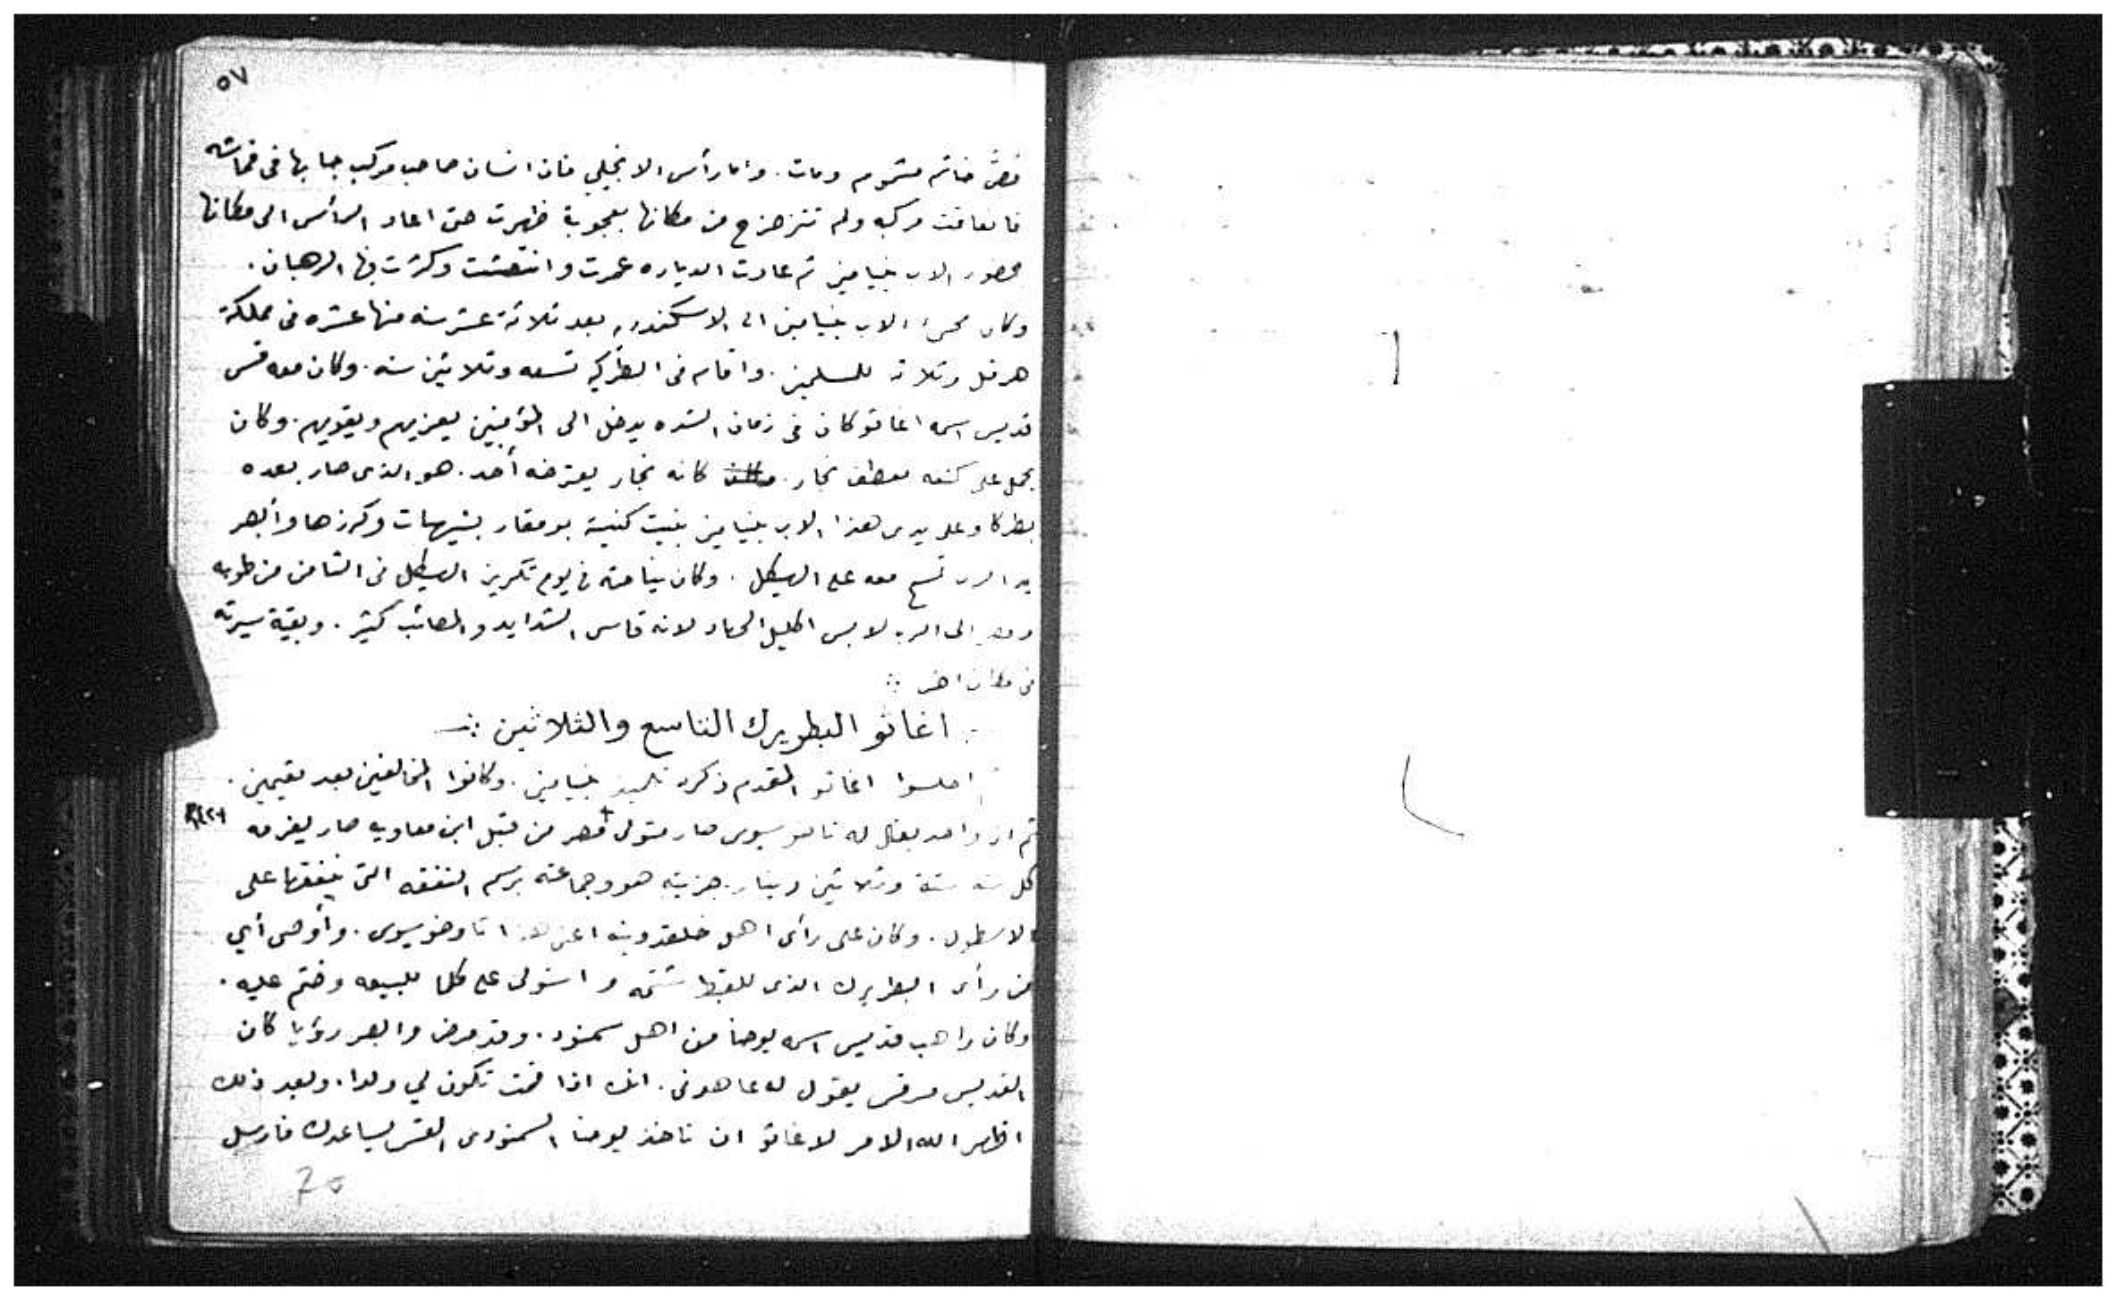 ٥٧
فصّ خاتم مسموم ومات. واما رأس الانجيلي فان انسان صاحب مركب خباها في قماشه
فانعاقت مركبه ولم تتزحزح من مكانها بعجوبة ظهرت حتى اعاد الرأس الى مكانها
بحضور الاب بنيامين ثم عادت الدياره عمرت وانتعشت وكترت فيها الرهبان.
وكان مجىء الاب بنيامين الى الاسكندريه بعد ثلاثة عشر سنه منها عشره في مملكة
هرقل وثلاثه للمسلمين. واقام في البطركيه تسعه وثلاثين سنه. وكان معه قس
قديس اسمه اغاتو كان في زمان الشده يدخل الى المؤمنين يعزيهم ويقويهم. وكان
يحمل على كتفه معطف نجار. كانه نجار يعترضه أحد. هو الذى صار بعده
بطركا وعلى يدى هذا الاب بنيامين بنيت كنيسة بو مقار بشيهات وكرزها وأبصر
يد الرب تمسح معه على الهيكل. وكان نياحته في يوم تكريز الهيكل في الثامن من طوبه
الى الرب لابس اكليل الجهاد لانه قاسى الشدايد والمصائب كثير. وبقية سيرته
في مكان اخر ⁘
اغاثو البطريرك التاسع والثلاثين ⁘
اجلسوا اغاتو المقدم ذكره تلميذ بنيامين. وكانوا المخالفين بعد مقيمين.
ثم ان واحد يقال له سيوس صار متولى مصر من قبل ابن معاويه صار يغرمه
كل سنه ستة وثلاثين دينار جزيته هو وجماعته برسم النفقه التى ينفقها على
الاسطول. وكان على رأى اهل خلقدونيه اعنى هذا تاوضوسيوس. وأوصى أي
من رأى البطريرك الذى للقبط شتمه واستولى على كلما للبيعه وختم عليه.
وكان راهب قديس اسمه يوحنا من اهل سمنود. وقد مرض وابصر رؤيا كان
القديس مرقس يقول له عاهدنى. انك اذا قمت تكون لي ولدا. وبعد ذلك
اظهر الله الامر لاغاتو ان تاخذ يوحنا السمنودى القس ليساعدك فارسل